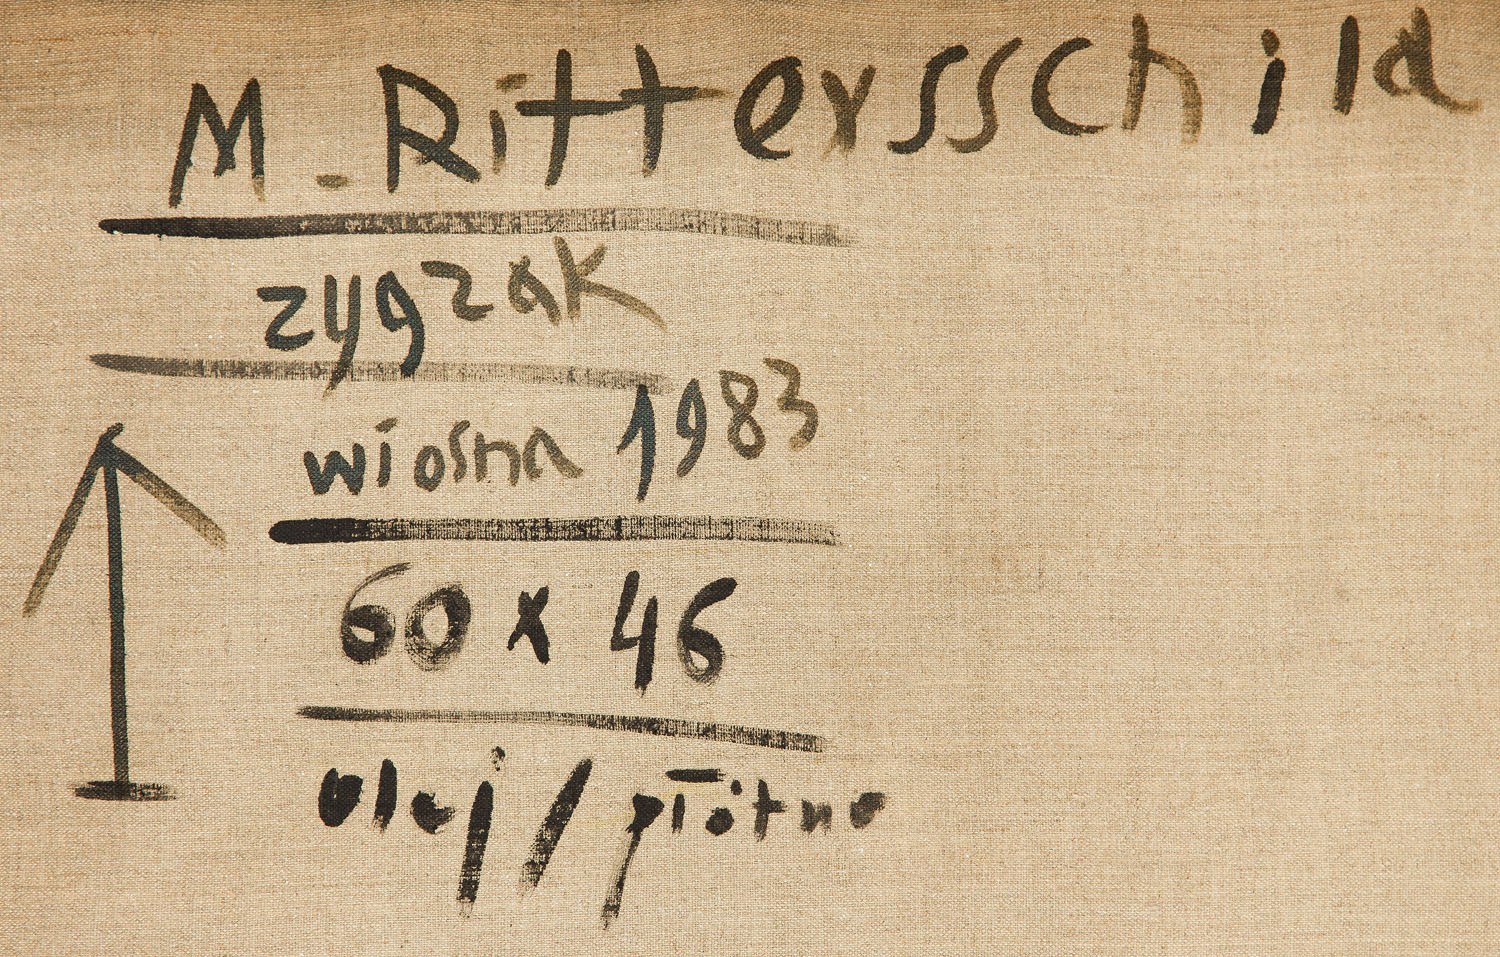 M. Rittersschild
zygzak
wiosna 1983
60 x 46
olej / płótno